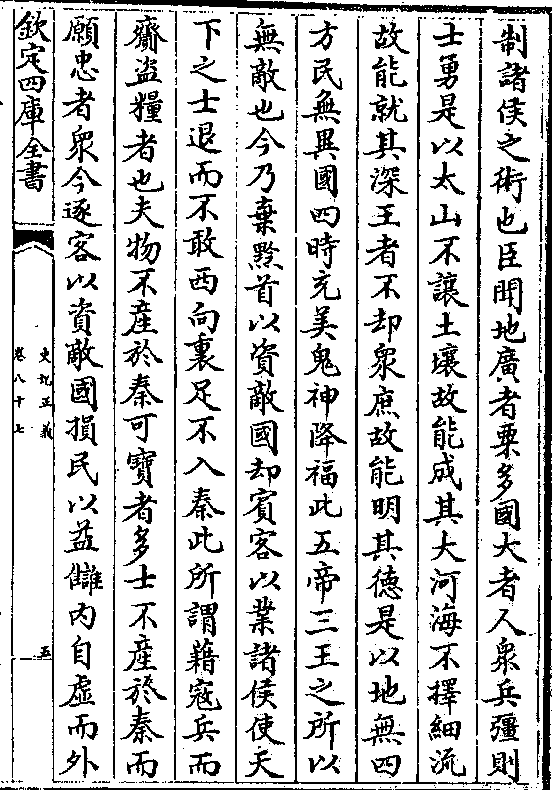 制諸侯之術也臣聞地廣者粟多國大者人衆兵彊則
士勇是以太山不讓土壤故能成其大河海不擇細流
故能就其深王者不却衆庶故能明其德是以地無四
方民無異國四時充美鬼神降福此五帝三王之所以
無敵也今乃棄黔首以資敵國却賓客以業諸侯使天
下之士退而不敢西向裹足不入秦此所謂藉寇兵而
齎盜糧者也夫物不產於秦可寶者多士不產於秦而
願忠者衆今逐客以資敵國損民以益讎内自虛而外
欽定四庫全書
史記正義
卷八十七
五